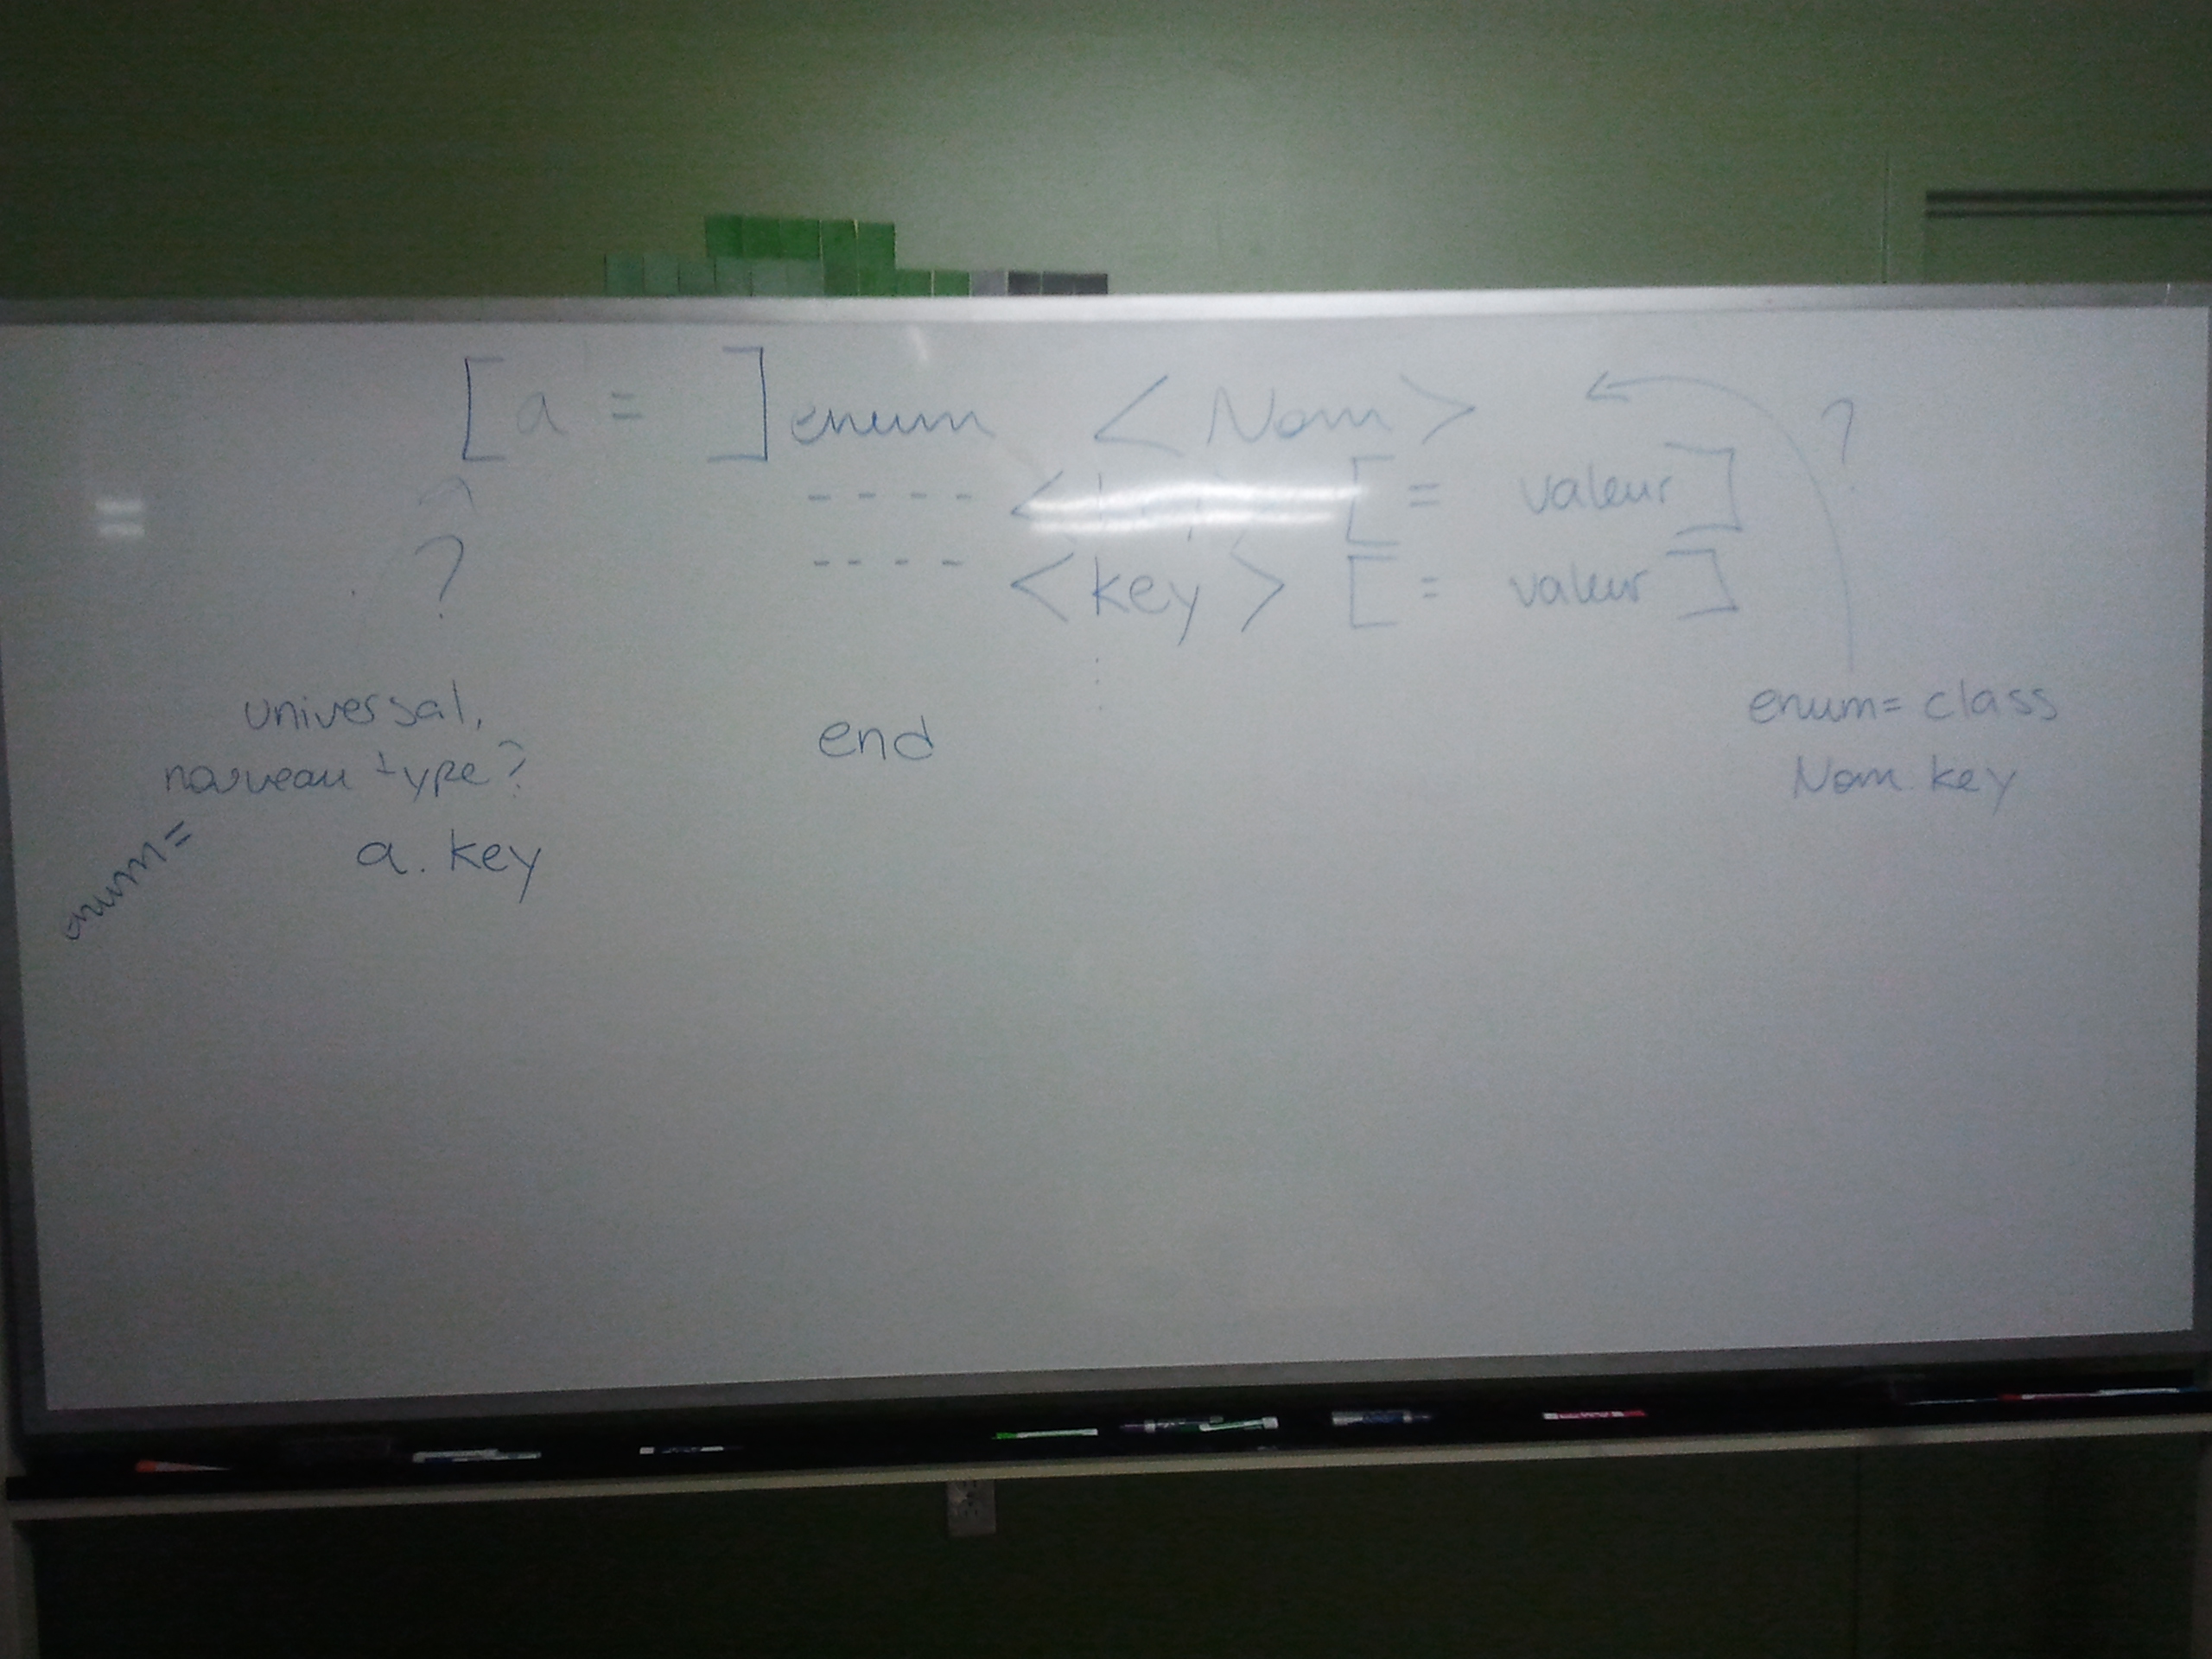 [a = ] enum <Nom> ?
---- < > [= valeur]
---- <key> [= valeur]
?
universal,
nouveau type?
enum=
a.key
end
enum= class
Nom.key